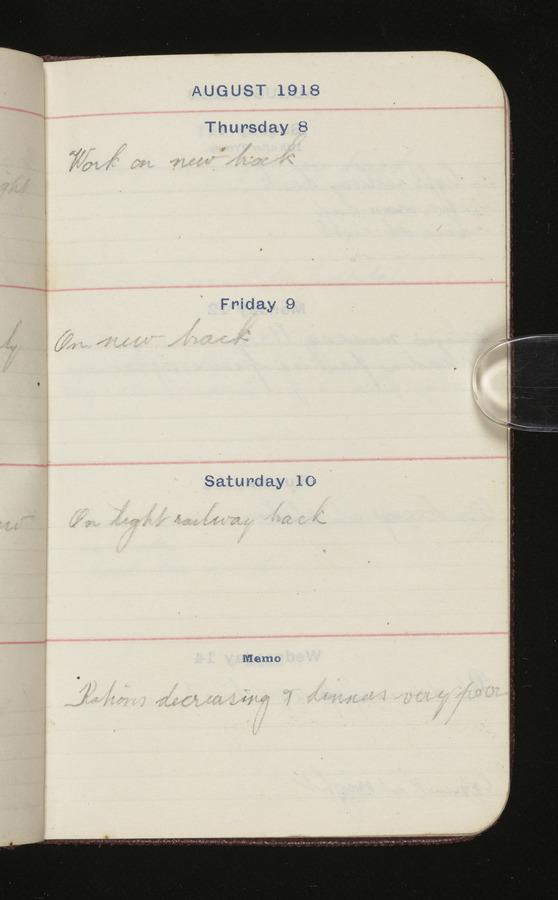 AUGUST 1918
Thursday 8
Work on new track
Friday 9
On new track
Saturday 10
On light railway track
Memo
Rations decreasing & dinners very poor